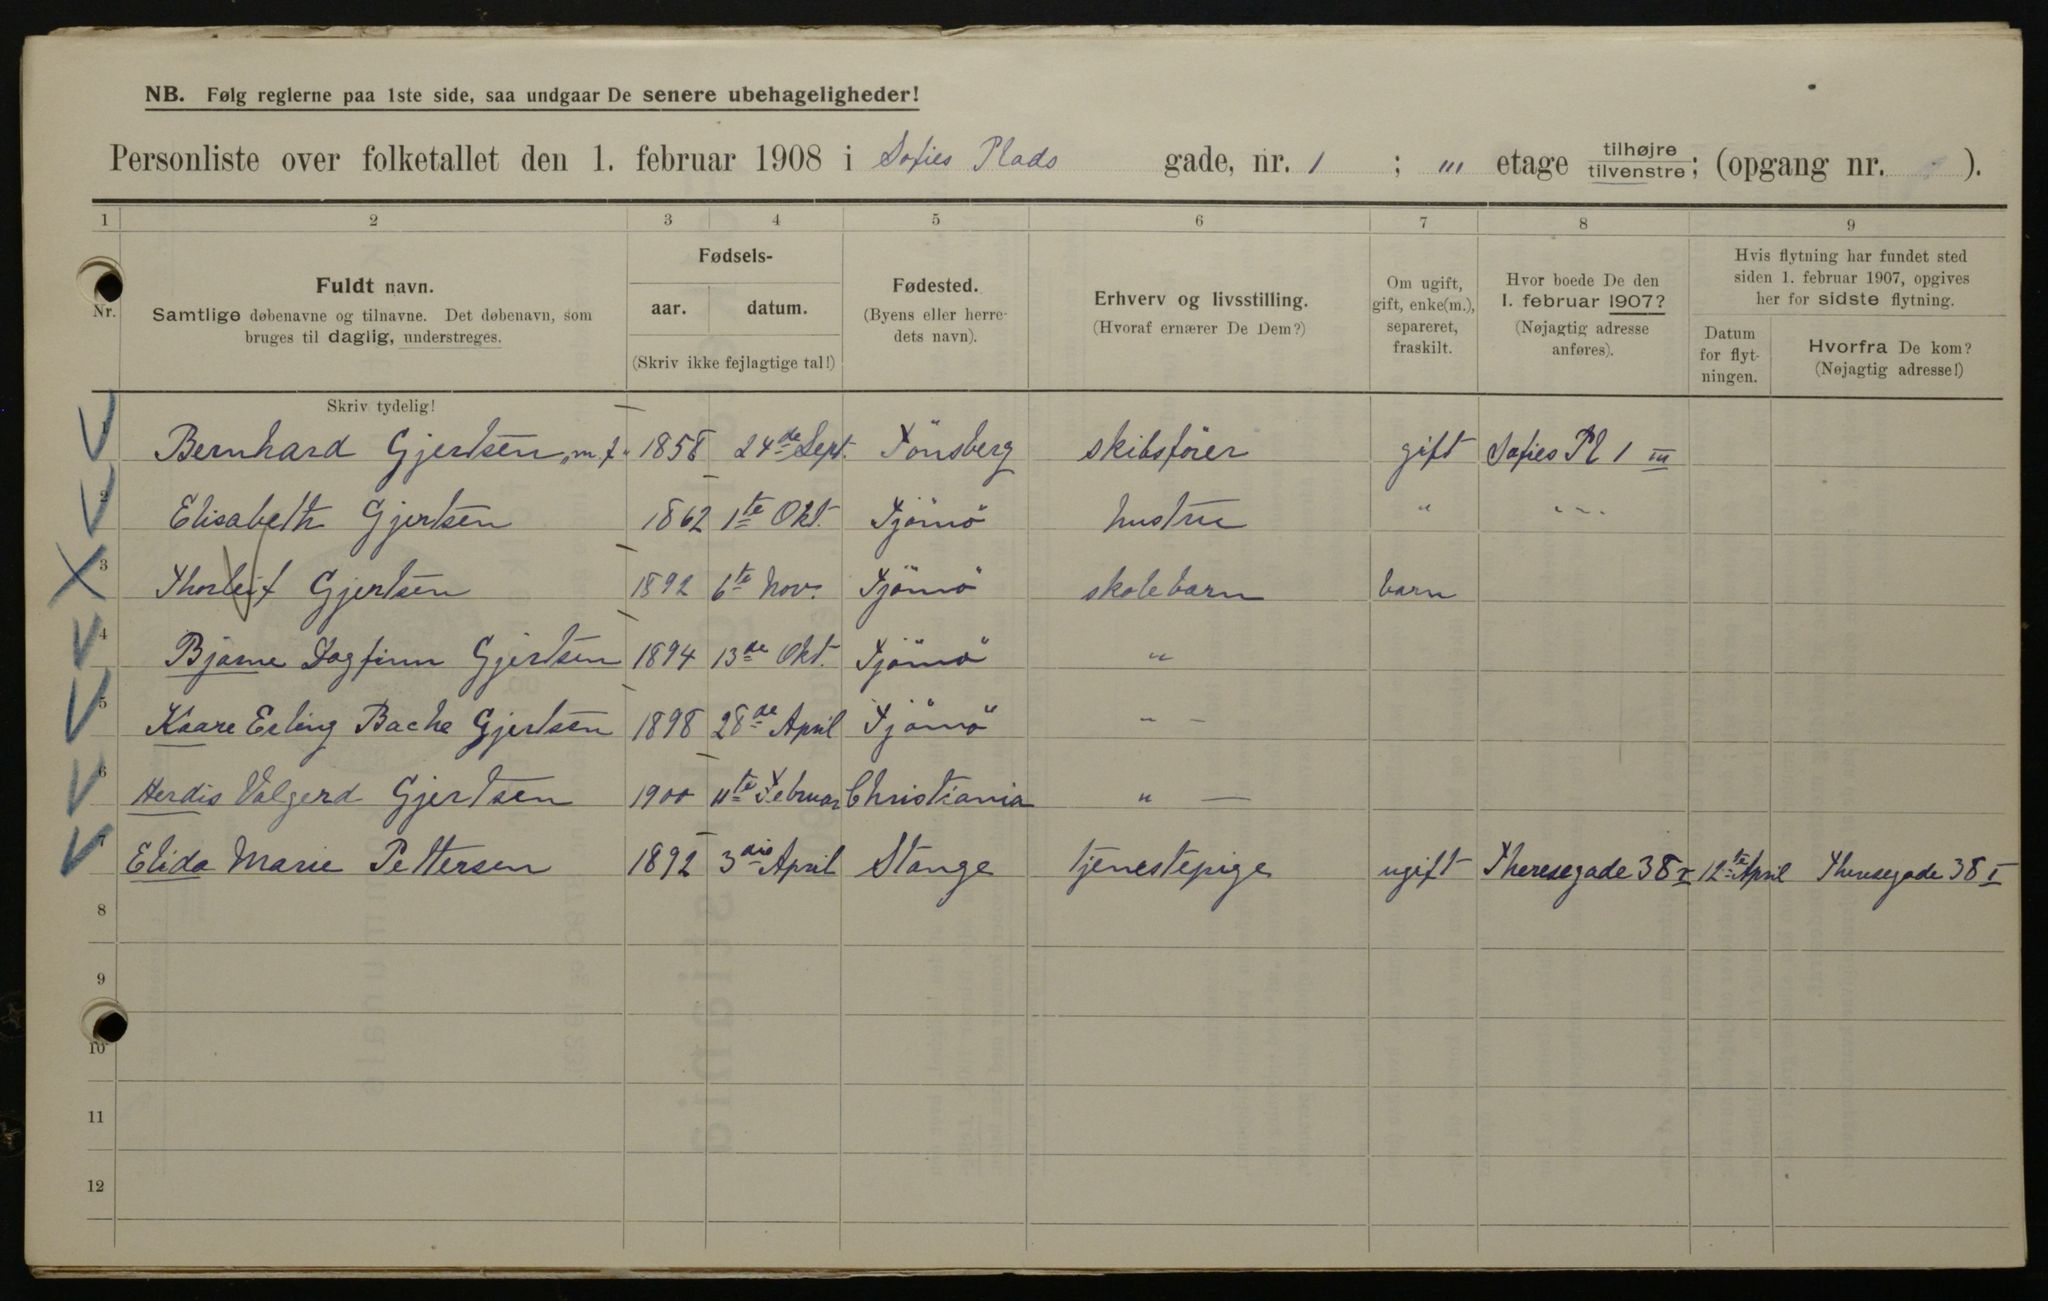 NB. Følg reglerne paa 1ste side, saa undgaar De senere ubehageligheder!
Personliste over folketallet den 1. februar 1908 i Sofies Plads gade, nr. 1 ; III etage tilhøjre tilvenstre; (opgang nr. ).
1 2 3 4 5 6 7 8 9
Nr.
Fuldt navn.
Samtlige døbenavne og tilnavne. Det døbenavn, som
bruges til daglig, understreges.
Fødsels-
aar. datum.
(Skriv ikke fejlagtige tal!)
Fødested.
(Byens eller herre-
dets navn).
Erhverv og livsstilling.
(Hvoraf ernærer De Dem?)
Om ugift,
gift, enke(m.),
separeret,
fraskilt.
Hvor boede De den
1. februar 1907?
(Nøjagtig adresse
anføres).
Hvis flytning har fundet sted
siden 1. februar 1907, opgives
her for sidste flytning.
Datum
for flyt-
ningen.
Hvorfra De kom?
(Nøjagtig adresse!)
Skriv tydelig!
Bernhard Gjertsen 1858 24de Sept. Tönsberg skibsförer gift Sofies Pl 1 III
2 Elisabeth Gjertsen 1862 1te Okt. Tjömö hustru " "
3 Thorleif Gjertsen 1892 6te Nov. Tjömö skolebarn barn
4 Bjarne Dagfinn Gjertsen 1894 13de Okt. Tjömö "
5 Kaare Erling Bache Gjertsen 1898 28de April Tjömö " –
6 Herdis Valgerd Gjertsen 1900 11te Februar Christiania " —
7 Elida Marie Pettersen 1892 3die April Stange tjenestepige ugift Theresegade 38 I 12te April Theresegade 38 I
8
9
10
11
12